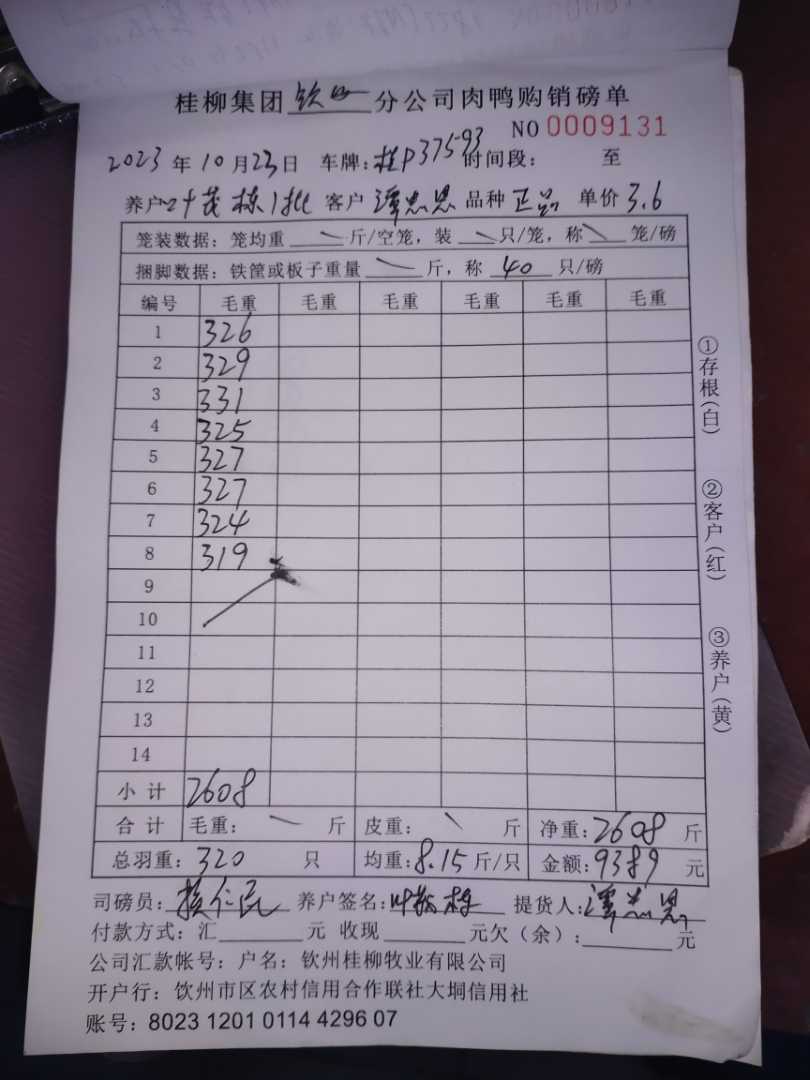 桂柳集团 钦州 分公司肉鸭购销磅单
NO 0009131
2023 年 10 月 23 日 车牌：桂P37593 时间段： 至
养户 叶茂栋1批 客户 谭忠恩 品种 正品 单价 3.6
笼装数据：笼均重 斤/空笼，装 只/笼，称 笼/磅
捆脚数据：铁筐或板子重量 斤，称 40 只/磅
编号 毛重 毛重 毛重 毛重 毛重 毛重
1 326
2 329
3 331
4 325
5 327
6 327
7 324
8 319
9
10
11
12
13
14
小计 2608
合计 毛重： 斤 皮重： 斤 净重：2608 斤
总羽重：320 只 均重：8.15 斤/只 金额：9389 元
司磅员： 养户签名：叶茂栋 提货人：谭忠恩
付款方式：汇 元 收现 元欠（余）： 元
公司汇款帐号：户名：钦州桂柳牧业有限公司
开户行：饮州市区农村信用合作联社大垌信用社
账号：8023 1201 0114 4296 07
①存根（白）
②客户（红）
③养户（黄）